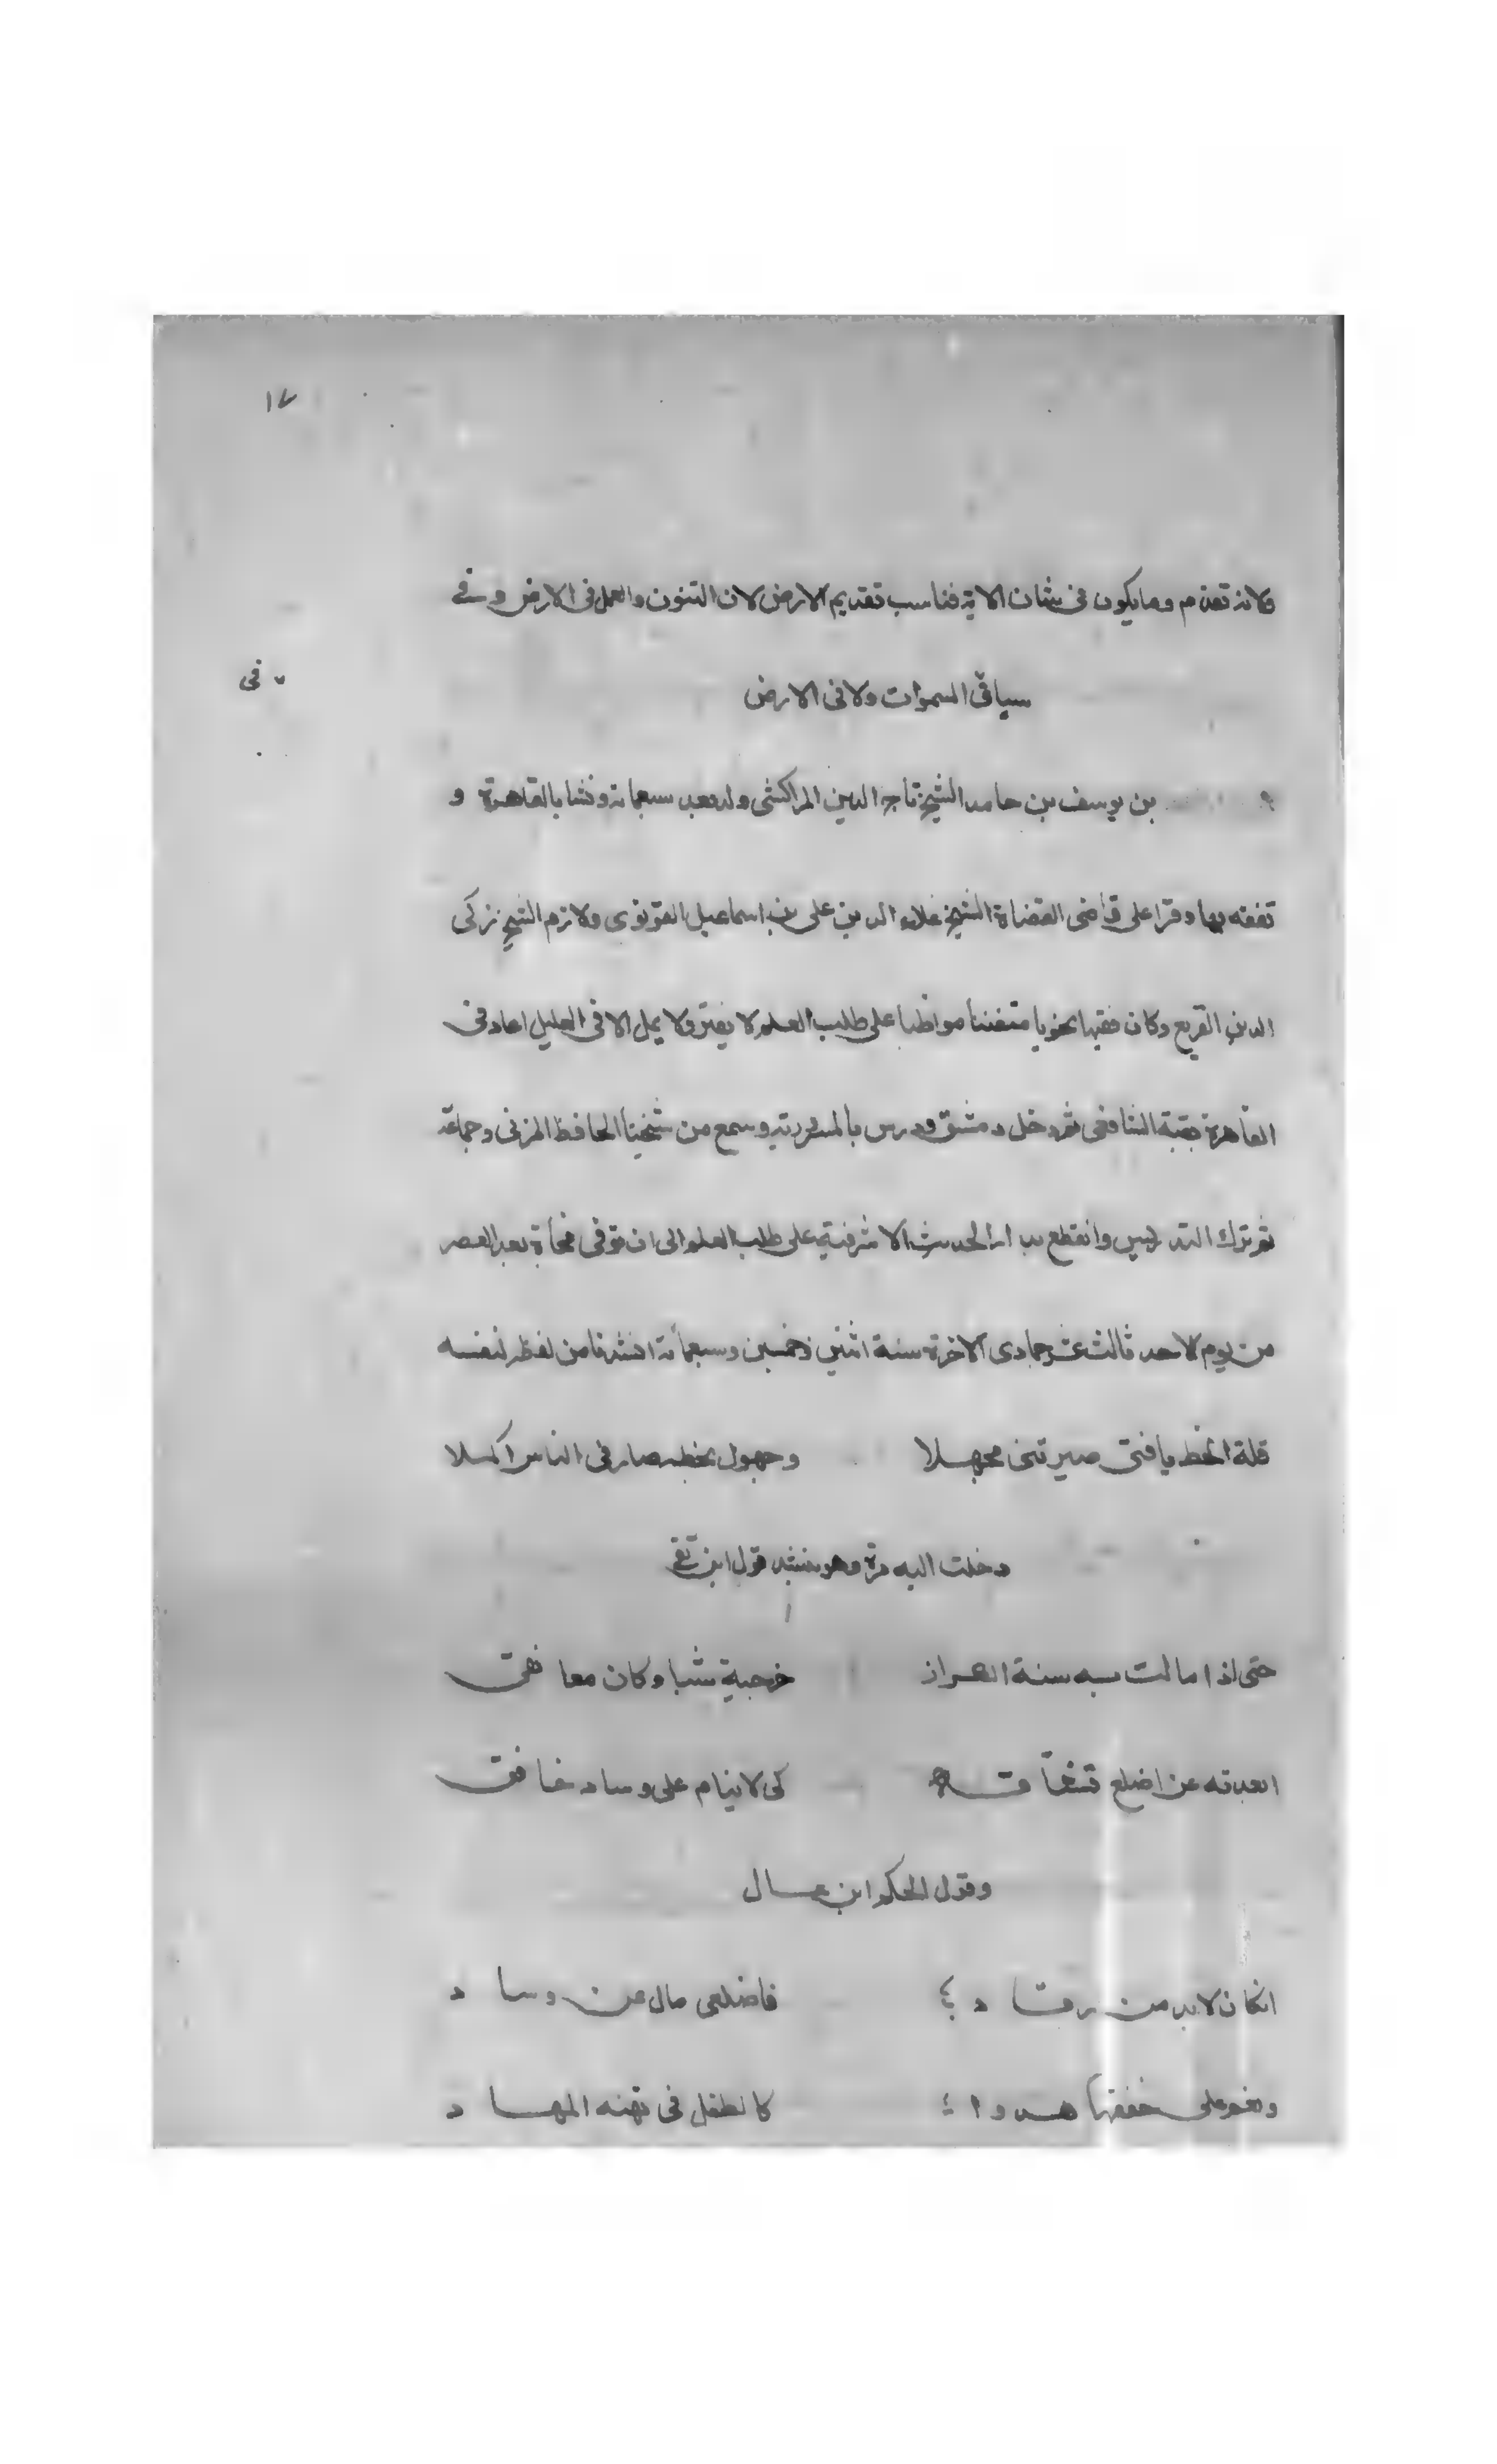 ١٧
ولانه تقدم وما يكون فى شان الاية فناسب تقديم الارض لان الشؤن والعمل فى الارض وفي
سياق السموات ولا فى الارض
فى
بن يوسف بن حامد الشيخ تاج الدين المراكشى ولد بعد سبعماية ونشا بالقاهرة و
تفقه بها وقرا على قاضى القضاة الشيخ علاء الدين على بن اسماعيل القونوى ولازم الشيخ زكى
الدين القريع وكان فقيها نحويا متفننا مواظبا على طلب العلم لا يفتر ولا يمل الا فى القليل اعاد فى
القاهرة بقبة الشافعى ثم دخل دمشق ودرس بالمسرورية وسمع من شيخنا الحافظ المزنى وجماعة
ثم ترك التدريس وانقطع بدار الحديث الاشرفية على طلب العلم الى ان توفى فجأة بعد العصر
من يوم الاحد ثالث عشر جمادى الاخرة سنة اثنين وخمسين وسبعمائة انشدنا من لفظه لنفسه
قلة الحظ يا فتى صيرتنى مجهلا وجهول بحظه صار فى الناس اكملا
دخلت اليه مرة وهو ينشد قول ابن تقي
حتى اذا مالت به سنة الكرا شيا وكان معانقى
ابعدته عن اضلع كى لا ينام على وساد خافق
وقول الحكم ابن عال
انكان لا بد من رقاد فاضلعى مال عن وساد
ونم على خفقها هدوا كالطفل فى نهنه المهاد